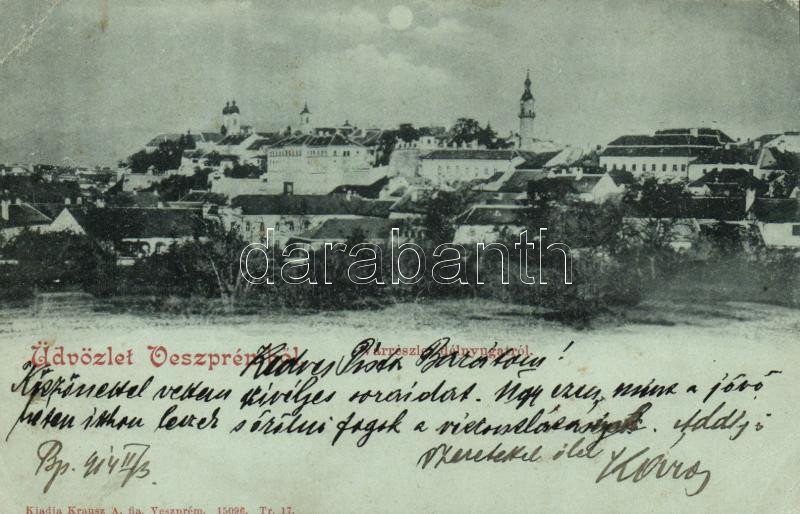 darabanth
Üdvözlet Veszprémből. Várrészlet délnyugatról.
Kedves Pista Barátom!
Köszönettel vettem szívélyes soraidat. Úgy ezen, mint a jövő
héten itthon leszek s örülni fogok a viszontlátásnak. Addig
Bp. 914 II/3 szeretettel ölel
Kiadja Krausz A. fia, Veszprém. 15096. Tr. 17.